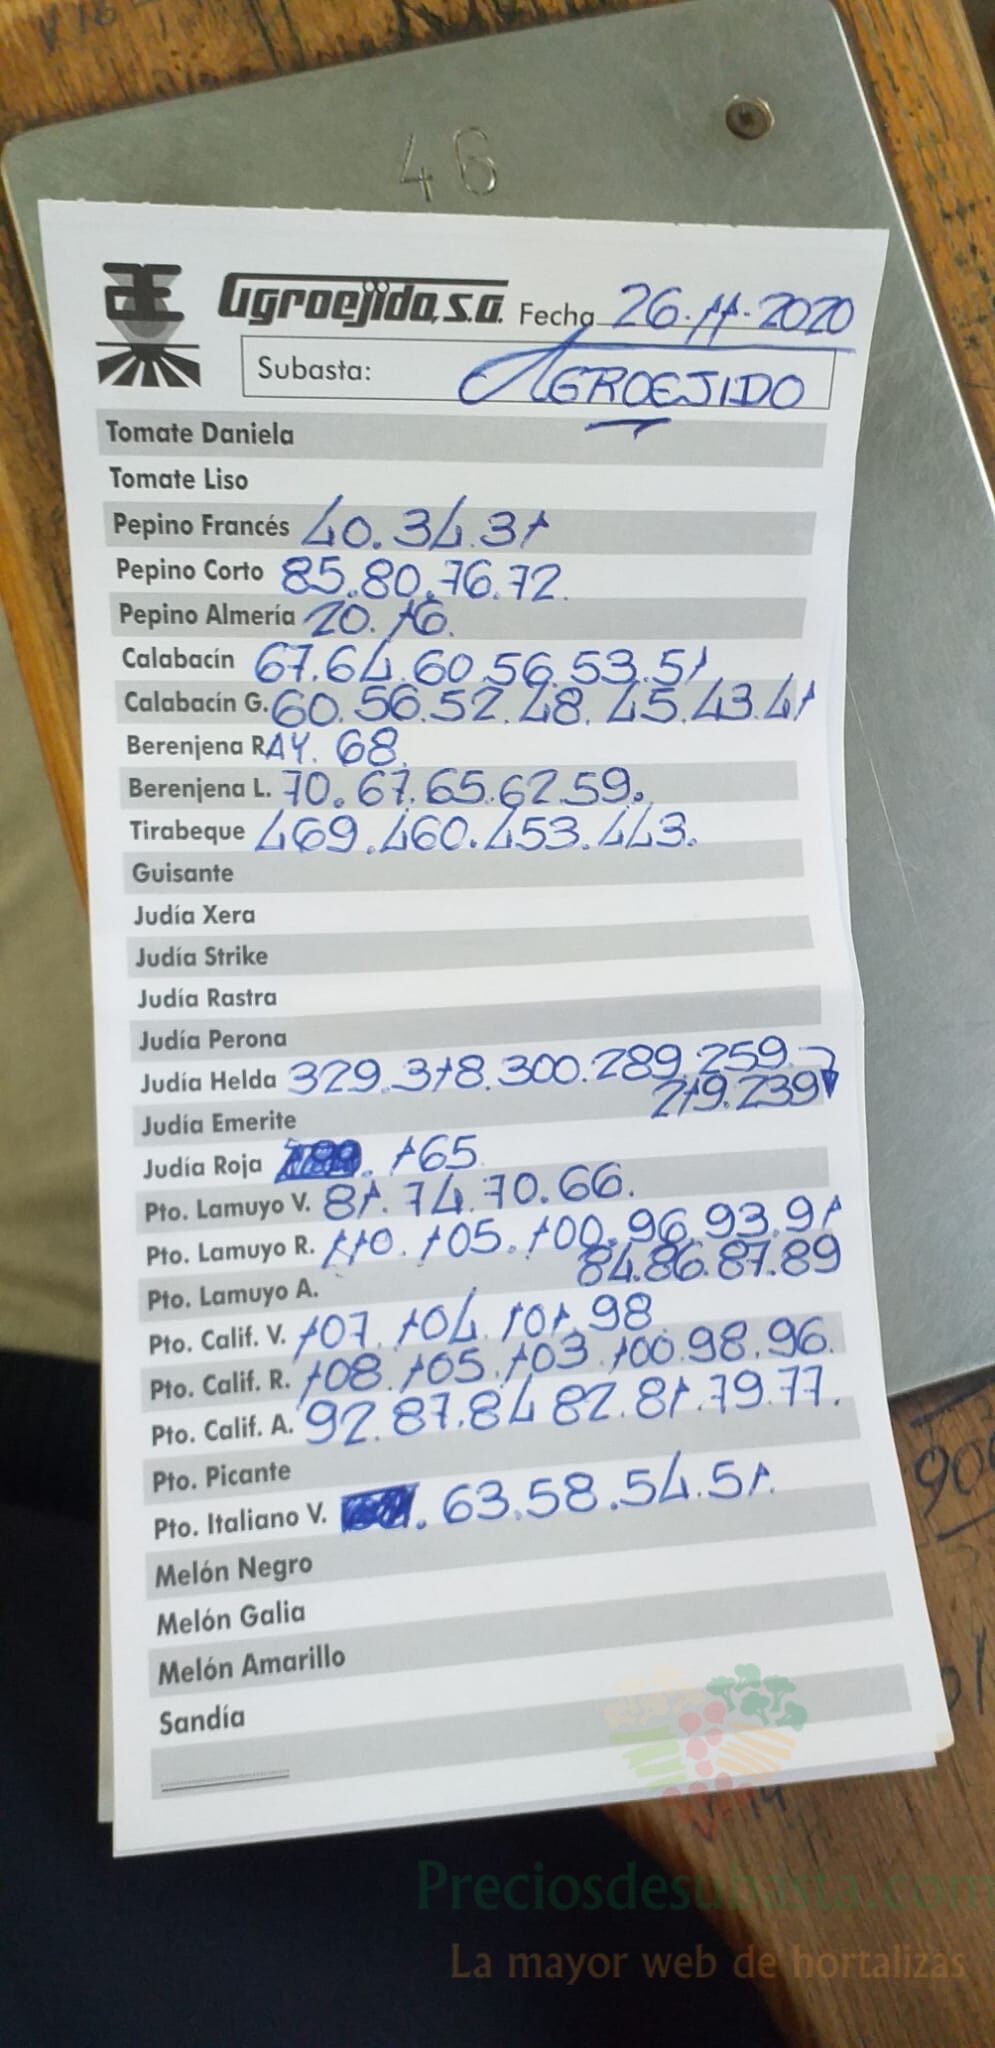 46
Agroejido, S.A. Fecha 26-11-2020
Subasta: AGROEJIDO
Tomate Daniela
Tomate Liso
Pepino Francés 40.34.31
Pepino Corto 85.80.76.72.
Pepino Almería 20.16.
Calabacín 67.64.60.56.53.51
Calabacín G. 60.56.52.48.45.43.41
Berenjena RAY. 68.
Berenjena L. 70.67.65.62.59.
Tirabeque 469.460.453.443.
Guisante
Judía Xera
Judía Strike
Judía Rastra
Judía Perona
Judía Helda 329.318.300.289.259.
219.239
Judía Emerite
Judía Roja . 165
Pto. Lamuyo V. 81.74.70.66.
Pto. Lamuyo R. 110.105.100.96.93.91
84.86.87.89
Pto. Lamuyo A.
Pto. Calif. V. 107.104.101.98
Pto. Calif. R. 108.105.103.100.98.96.
Pto. Calif. A. 92.87.84 82.81.79.77.
Pto. Picante
Pto. Italiano V. . 63.58.54.51.
Melón Negro
Melón Galia
Melón Amarillo
Sandía
Preciosdesubasta.com
La mayor web de hortalizas